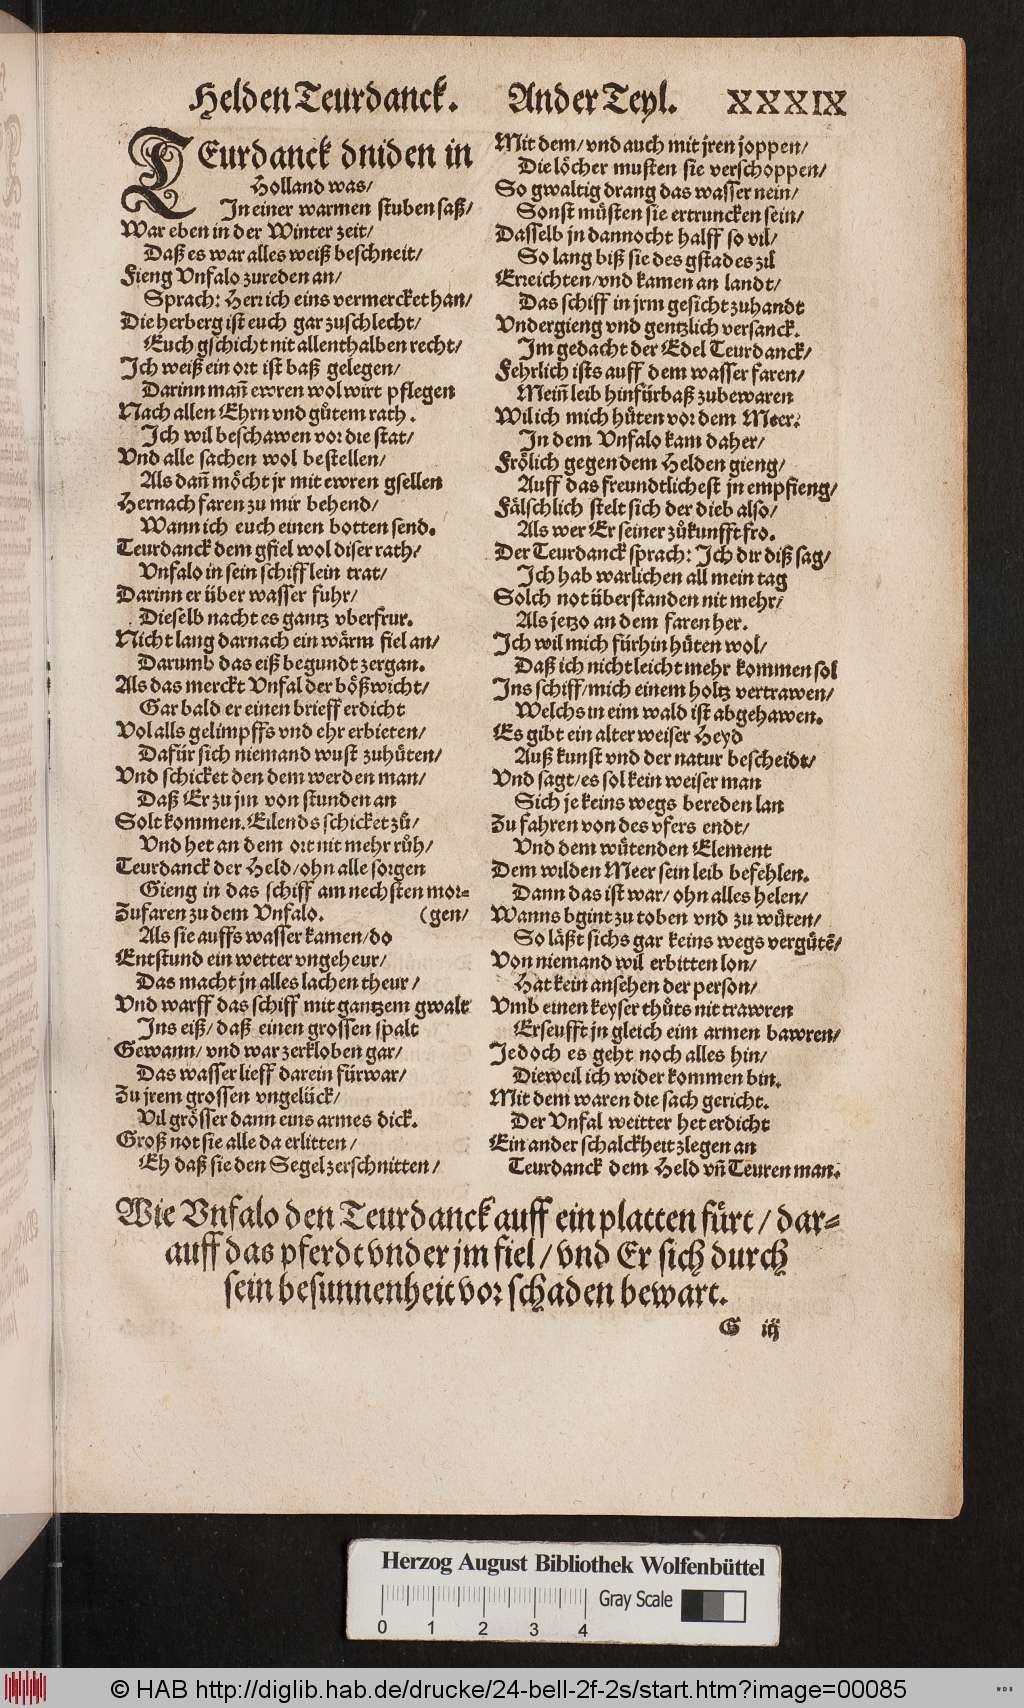 Helden Teurdanck. Ander Teyl. XXXIX
TEurdanck dniden in
Holland was/
In einer warmen stuben saß/
War eben in der Winter zeit/
Daß es war alles weiß beschneit/
Fieng Vnfalo zureden an/
Sprach: Herr ich eins vermercket han/
Die herberg ist euch gar zuschlecht/
Euch gschicht nit allenthalben recht/
Ich weiß ein ort ist baß gelegen/
Darinn mañ ewren wol wirt pflegen
Nach allen Ehrn vnd gůtem rath.
Ich wil beschawen vor die stat/
Vnd alle sachen wol bestellen/
Als dañ möcht jr mit ewren gsellen
Hernach faren zu mir behend/
Wann ich euch einen botten send.
Teurdanck dem gfiel wol diser rath/
Vnfalo in sein schifflein trat/
Darinn er über wasser fuhr/
Dieselb nacht es gantz vberfrur.
Nicht lang darnach ein wärm fiel an/
Darumb das eiß begundt zergan.
Als das merckt Vnfal der bößwicht/
Gar bald er einen brieff erdicht
Vol alls gelimpffs vnd ehr erbieten/
Dafür sich niemand wust zuhüten/
Vnd schicket den dem werden man/
Daß Er zu jm von stunden an
Solt kommen. Eilends schicket zů/
Vnd het an dem ort nit mehr růh/
Teurdanck der Held/ ohn alle sorgen
Gieng in das schiff am nechsten mor-
Zufaren zu dem Vnfalo. (gen/
Als sie auffs wasser kamen/ do
Entstund ein wetter vngeheur/
Das macht jn alles lachen theur/
Vnd warff das schiff mit gantzem gwalt
Ins eiß/ daß einen grossen spalt
Gewann/ vnd war zerkloben gar/
Das wasser lieff darein fürwar/
Zu jrem grossen vngelück/
Vil grösser dann eins armes dick.
Groß not sie alle da erlitten/
Eh daß sie den Segel zerschnitten/
Mit dem/ vnd auch mit jren joppen/
Die löcher musten sie verschoppen/
So gwaltig drang das wasser nein/
Sonst müsten sie ertruncken sein/
Dasselb jn dannocht halff so vil/
So lang biß sie des gstades zil
Erreichten/ vnd kamen an landt/
Das schiff in jrm gesicht zuhandt
Vndergieng vnd gentzlich versanck.
Im gedacht der Edel Teurdanck/
Fehrlich ists auff dem wasser faren/
Meiñ leib hinfürbaß zubewaren
Wil ich mich hüten vor dem Meer.
In dem Vnfalo kam daher/
Frölich gegen dem Helden gieng/
Auff das freundtlichest jn empfieng/
Fälschlich stelt sich der dieb also/
Als wer Er seiner zůkunfft fro.
Der Teurdanck sprach: Ich dir diß sag/
Ich hab warlichen all mein tag
Solch not überstanden nit mehr/
Als jetzo an dem faren her.
Ich wil mich fürhin hüten wol/
Daß ich nicht leicht mehr kommen sol
Ins schiff/ mich einem holtz vertrawen/
Welchs in eim wald ist abgehawen.
Es gibt ein alter weiser Heyd
Auß kunst vnd der natur bescheidt/
Vnd sagt/ es sol kein weiser man
Sich je keins wegs bereden lan
Zu fahren von des vfers endt/
Vnd dem wütenden Element
Dem wilden Meer sein leib befehlen.
Dann das ist war/ ohn alles helen/
Wanns bgint zu toben vnd zu wüten/
So läßt sichs gar keins wegs vergütē/
Von niemand wil erbitten lon/
Hat kein ansehen der person/
Vmb einen keyser thůts nit trawren
Erseufft jn gleich eim armen bawren/
Jedoch es geht noch alles hin/
Dieweil ich wider kommen bin.
Mit dem waren die sach gericht.
Der Vnfal weitter het erdicht
Ein ander schalckheit zlegen an
Teurdanck dem Held vñ Teuren man.
Wie Vnfalo den Teurdanck auff ein platten fürt/ dar-
auff das pferdt vnder jm fiel/ vnd Er sich durch
sein besunnenheit vor schaden bewart.
G iij
Herzog August Bibliothek Wolfenbüttel
Gray Scale
0 1 2 3 4
© HAB http://diglib.hab.de/drucke/24-bell-2f-2s/start.htm?image=00085